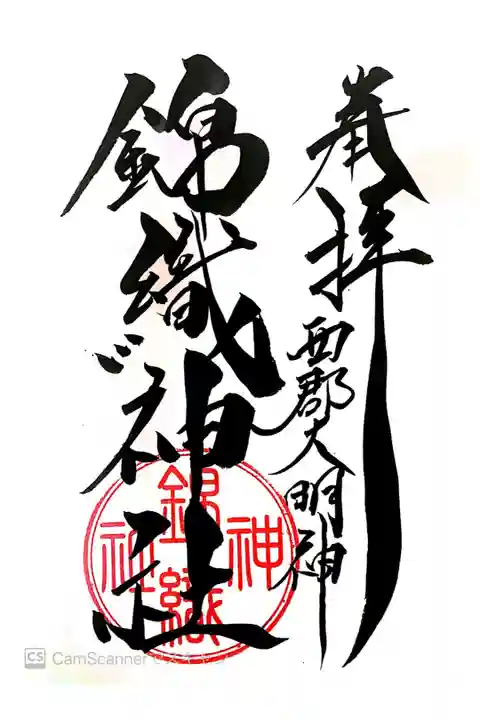 奉拝
西郡大明神
錦織神社
錦織神社
CS CamScanner でスキャン